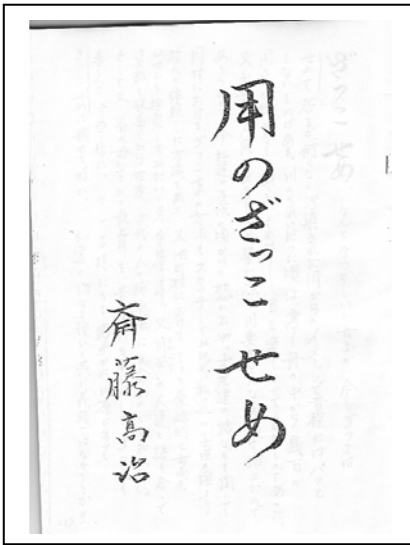 用のざっこせめ
斎藤高治